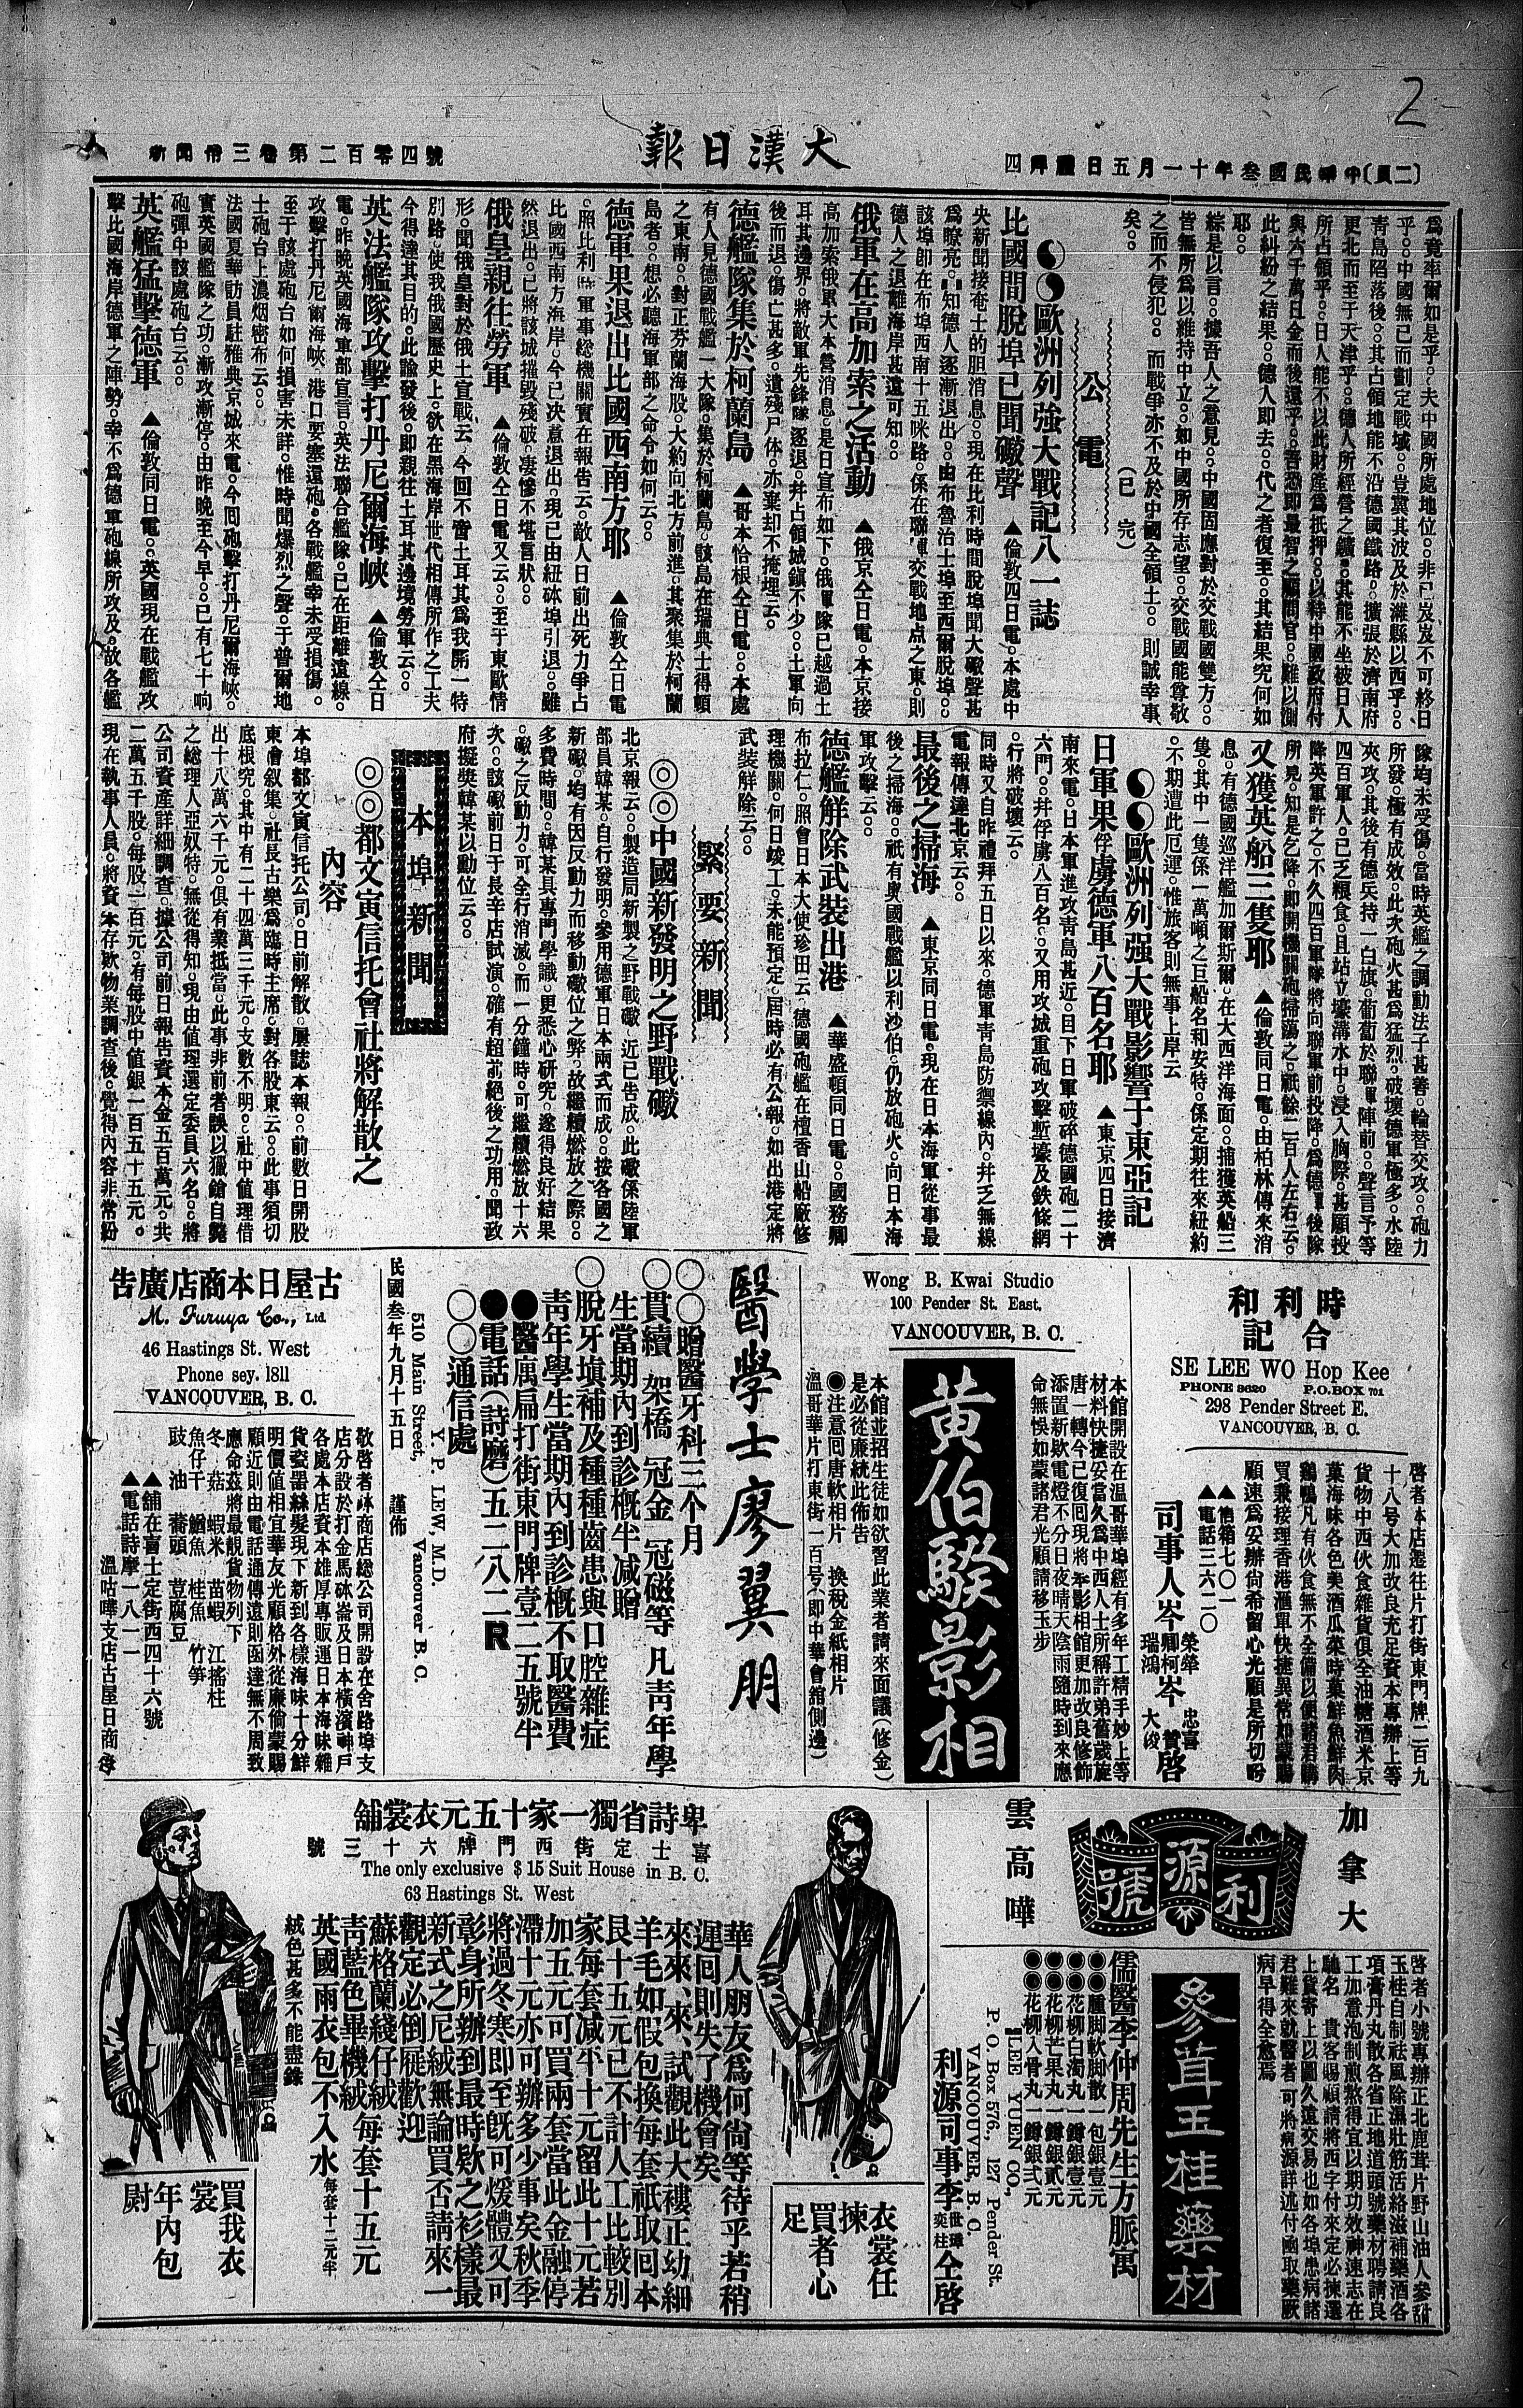 2
(二頁)中華民國叁年十一月五日禮拜四
大漢日報
新聞帋三卷第二百零四號
爲竟率爾如是乎。夫中國所處地位。非已岌岌不可終日
乎。中國無已而劃定戰域。豈冀其波及於濰縣以西乎。
靑島陷落後。其占領地能不沿德國鐵路。擴張於濟南府
更北而至于天津乎。德人所經營之鑛。其能不坐被日人
所占領乎。日人能不以此財産爲抵押。以特中國政府付
與六千萬日金而後還乎。吾恐即最智之顧問官。難以測
此糾紛之結果。德人即去。代之者復至。其結果究何如
耶。
綜是以言。據吾人之意見。中國固應對於交戰國雙方。
皆無所爲以維持中立。如中國所存志望。交戰國能尊敬
之而不侵犯。而戰爭亦不及於中國全領土。則誠幸事
矣。 (已完)
公電
歐洲列強大戰記八一誌
比國間脫埠已聞礮聲 ▲倫敦四日電。本處中
央新聞接奄士的胆消息。現在比利時間脫埠聞大礮聲甚
爲瞭亮。知德人逐漸退出。由布魯治士埠至西爾脫埠。
該埠即在布埠西南十五咪路。係在聯軍交戰地点之東。則
德人之退離海岸甚遠可知。
俄軍在高加索之活動 ▲俄京仝日電。本京接
高加索俄軍大本營消息。是日宣布如下。俄軍隊已越過土
耳其邊界。將敵軍先鋒隊逐退。幷占領城鎭不少。土軍向
後而退。傷亡甚多。遺殘尸体。亦棄却不掩埋云。
德艦隊集於柯蘭島 ▲哥本恰根仝日電。本處
有人見德國戰艦一大隊。集於柯蘭島。該島在瑞典士得頓
之東南。對正芬蘭海股。大約向北方前進。其聚集於柯蘭
島者。想必聽海軍部之命令如何云。
德軍果退出比國西南方耶 ▲倫敦仝日電
。照比利時軍事総機關實在報告云。敵人日前出死力爭占
比國西南方海岸。今已决意退出。現已由紐砵埠引退。雖
然退出。已將該城摧毀殘破。凄慘不堪言狀。
俄皇親往勞軍 ▲倫敦仝日電又云。至于東歐情
形。聞俄皇對於俄土宣戰云。今回不啻土耳其爲我開一特
別路。使我俄國歷史上。欲在黑海岸世代相傳所作之工夫
今得達其目的。此諭發後。即親往土耳其邊境勞軍云。
英法艦隊攻擊打丹尼爾海峽 ▲倫敦仝日
電。昨晚英國海軍部宣言。英法聯合艦隊。已在距離遠線。
攻擊打丹尼爾海峽。港口要塞還砲。各戰艦幸未受損傷。
至于該處砲台如何損害未詳。惟時聞爆烈之聲。于普爾地
士砲台上濃烟密布云。
法國夏華訪員駐雅典京城來電。今囘砲擊打丹尼爾海峽。
實英國艦隊之功。漸攻漸停。由昨晚至今早。已有七十响
砲彈中該處砲台云。
英艦猛擊德軍 ▲倫敦同日電。英國現在戰艦攻
擊比國海岸德軍之陣勢。幸不爲德軍砲線所攻及。故各艦
隊均未受傷。當時英艦之調動法子甚善。輪替交攻。砲力
所發。極有成效。此次砲火甚爲猛烈。破壞德軍極多。水陸
夾攻。其後有德兵持一白旗。葡萄於聯軍陣前。聲言予等
四百軍人。已乏糧食。且站立壕溝水中。浸入胸際。甚願投
降英軍許之。不久四百軍隊將向聯軍前投降。爲德軍後隊
所見。知是乞降。即開機關砲掃蕩之。祇餘二百人左右云。
又獲英船三隻耶 ▲倫敦同日電。由柏林傳來消
息。有德國巡洋艦加爾斯爾。在大西洋海面。捕獲英船三
隻。其中一隻係一萬噸之巨船名和安特。係定期往來紐約
。不期遭此厄運。惟旅客則無事上岸云
歐洲列强大戰影響于東亞記
日軍果俘虜德軍八百名耶 ▲東京四日接濟
南來電。日本軍進攻靑島甚近。目下日軍破碎德國砲二十
六門。幷俘虜八百名。又用攻城重砲攻擊塹壕及鉄條網
。行將破壞云。
同時又自昨禮拜五日以來。德軍靑島防禦線內。幷乏無線
電報傳達北京云。
最後之掃海 ▲東京同日電。現在日本海軍從事最
後之掃海。祇有奧國戰艦以利沙伯。仍放砲火。向日本海
軍攻擊云。
德艦觧除武裝出港 ▲華盛頓同日電。國務卿
布拉仁。照會日本大使珍田云。德國砲艦在檀香山船廠修
理機關。何日竣工。未能預定。屆時必有公報。如出港定將
武裝觧除云。
緊要新聞
◎◎中國新發明之野戰礮
北京報云。製造局新製之野戰礮。近已告成。此礮係陸軍
部員韓某。自行發明。參用德軍日本兩式而成。按各國之
新礮。均有因反動力而移動礮位之弊。故繼續燃放之際。
多費時間。韓某具專門學識。更悉心研究。遂得良好結果
。礮之反動力。可全行消滅。而一分鐘時。可繼續燃放十六
次。該礮前日于長辛店試演。確有超前絕後之功用。聞政
府擬獎韓某以勳位云。
本埠新聞
◎◎都文寅信托會社將解散之
內容
本埠都文寅信托公司。日前解散。屢誌本報。前數日開股
東會叙集。社長古樂爲臨時主席。對各股東云。此事須切
底根究。其中有二十四萬三千元。支數不明。社中值理借
出十八萬六千元。俱有業抵當。此事非前者誤以獵鎗自斃
之総理人亞奴特。無從得知。現由值理選定委員六名。將
公司資產詳細調查。據公司前日報吿資本金五百萬元。共
二萬五千股。每股一百元。有每股中值銀一百五十五元。
現在執事人員。將資本存欵物業調查後。覺得內容非常紛
時利和
合記
SE LEE WO Hop Kee
PHONE 3620 P.O.BOX 701
298 Pender Street E.
VANCOUVER, B. C.
啓者本店遷往片打街東門牌二百九
十八号大加改良充足資本專辦上等
貨物中西伙食雜貨俱全油糖酒米京
菓海味各色美酒瓜菜時菓鮮魚鮮肉
鷄鴨凡有伙食無不全備以便諸君購
買兼接理香港滙單快捷異常如蒙賜
顧速爲妥辦尙希留心光顧是所切盼
▲信箱七〇一
▲電話三六二〇
司事人岑 榮犖 卿柯 瑞鴻 岑 忠喜 贊 大俊 啓
Wong B. Kwai Studio
100 Pender St. East.
VANCOUVER, B. C.
本館開設在温哥華埠經有多年工精手妙上等
材料快捷妥當久爲中西人士所稱許弟舊歲旋
唐一轉今已復囘現將本影相館更加改良修飾
添置新欵電燈不分日夜晴天陰雨隨時到來應
命無悞如蒙諸君光顧請移玉步
黃伯騤影相
本館並招生徒如欲習此業者請來面議(修金)
是必從廉統此佈告
●注意囘唐軟相片 換稅金紙相片
溫哥華片打東街一百号(即中華會舘側邊)
醫學士廖翼朋
○○贈醫牙科三个月
○貫續 架橋 冠金 冠磁等凡靑年學
生當期內到診概半减贈
○脫牙塡補及種種齒患與口腔雜症
靑年學生當期內到診概不取醫費
●醫寓扁打街東門牌壹二五號半
●電話(詩磨)五二八二R
○○通信處
Y. P. LEW, M.D.
510 Main Street, Vancouver B. C.
民國叁年九月十五日 謹佈
古屋日本商店廣告
M. Furuya Co., Ltd.
46 Hastings St. West
Phone sey. 1811
VANCOUVER, B. C.
敬啓者本商店総公司開設在舍路埠支
店分設於打金馬砵崙及日本橫濱神戶
各處本店資本雄厚專販運日本海味雜
貨瓷器絲髮現下新到各樣海味十分鮮
明價值相宜華友光顧格外從廉倘蒙賜
顧近則由電話通傳遠則函達無不周致
應命茲將最靚貨物列下
冬菇 蝦米 苗蝦 江搖柱
魚仔干 鱛魚 桂魚 竹笋
豉油 蕎頭 荳腐豆
▲舖在喜士定街西四十六號
▲電話詩摩一八一一
溫咕嘩支店古屋日商啓
加拿大
利源號
雲高嘩
啓者小號專辦正北鹿茸片野山油人參甜
玉桂自制祛風除濕壯筋活絡滋補藥酒各
項膏丹丸散各省正地道頭號藥材聘請良
工加意泡制煎熬得宜以期功效神速志在
馳名 貴客賜顧請將四字付來定必揀選
上貨寄上以圖久遠交易也如各埠患病諸
君難來就醫者可將病源詳述付函取藥厥
病早得全愈焉
參茸玉桂藥材
儒醫李仲周先生方脈寓
●●腫脚軟脚散一包銀壹元
●●花柳白濁丸一罇銀壹元
●●花柳芒果丸一罇銀貳元
●●花柳入骨丸一罇銀弍元
LEE YUEN CO.,
P. O. Box 576., 127 Pender St.
VANCOUVER, B. C.
利源司事李 世璋 奕柱 仝啓
卑詩省獨一家十五元衣裳舖
喜士定街西門牌六十三號
The only exclusive $ 15 Suit House in B. C.
63 Hastings St. West
華人朋友爲何尙等待乎若稍
遲囘則失了機會矣
來來、來、試觀此大褸正幼細
羊毛如假包換每套祇取囘本
艮十五元已不計人工比較別
家每套减半十元留此十元若
加五元可買兩套當此金融停
滯十元亦可辦多少事矣秋季
將過冬寒即至旣可煖體又可
彰身所辦到最時欵之衫樣最
新式之尼絨無論買否請來一
觀定必倒屣歡迎
蘇格蘭綫仔絨
靑藍色畢機絨 每套十五元
英國雨衣包不入水 每套十二元半
絨色甚多不能盡錄
衣裳任揀
買者心足
買我衣裳
年內包尉